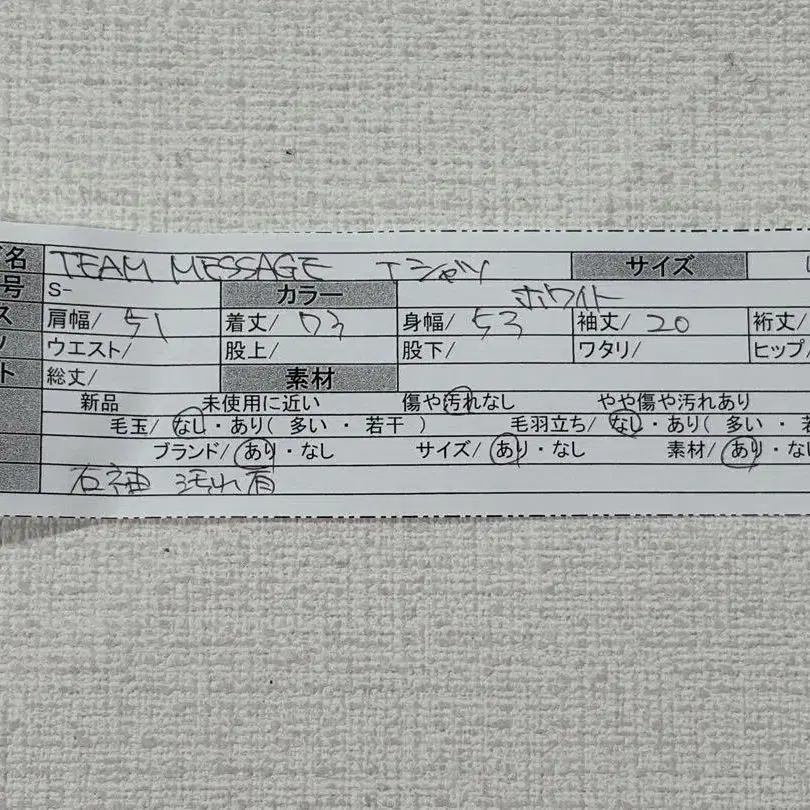 名 TEAM MESSAGE Tシャツ サイズ
号 S- カラー ホワイト
ス 肩幅/ 51 着丈/ 73 身幅/ 53 袖丈/ 20 裄丈/
ウエスト/ 股上/ 股下/ ワタリ/ ヒップ/
ト 総丈/ 素材
新品 未使用に近い 傷や汚れなし やや傷や汚れあり
毛玉/ なし・あり( 多い ・ 若干 ) 毛羽立ち/ なし・あり( 多い ・
ブランド/ あり・なし サイズ/ あり・なし 素材/ あり・なし
右袖 汚れ有